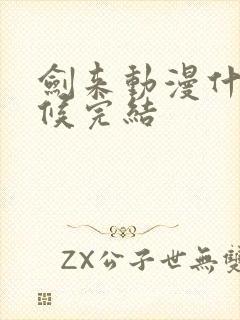 劍来動漫什
候完結
ZX公子世無雙